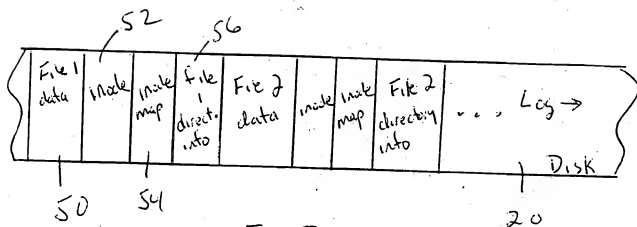 52
56
File 1 data
inode
inode map
File 1 direct. info
File 2 data
inode
inode map
File 2 directory info
... Log →
Disk
50
54
20